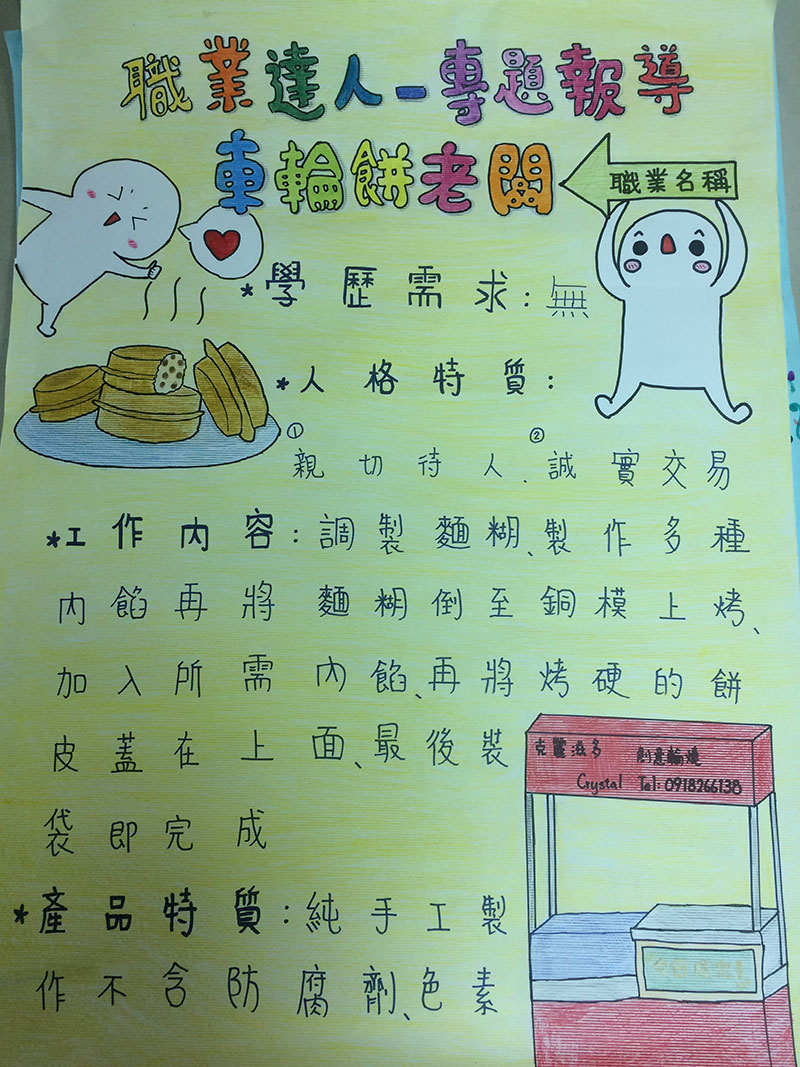 職業達人-專題報導
車輪餅老闆
職業名稱
*學歷需求:無
*人格特質:
①親切待人、②誠實交易
*工作內容:調製麵糊、製作多種
內餡再將麵糊倒至銅模上烤、
加入所需內餡、再將烤硬的餅
皮蓋在上面、最後裝
袋即完成
克麗滋多 創意輪燒
Crystal Tel:0918266138
*產品特質:純手工製
作不含防腐劑、色素